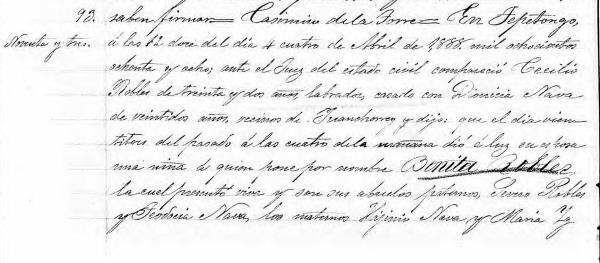 93. saben firmar = Casimiro de la Torre = En Tepetongo,
Noventa y tres. á las 12 doce del dia 4 cuatro de Abril de 1888. mil ochocientos
ochenta y ocho; ante el Juez del estado civil compareció Cecilio
Robles de treinta y dos años, labrador, casado con Dionicia Nava
de veintidos años, vecinos de Juanchorrey y dijo: que el dia vien
titres del pasado á las cuatro de la mañana dió á luz su esposa
una niña á quien pone por nombre Benita Robles,
la cual presentó viva y son sus abuelos paternos, Severo Robles
y Teodocia Nava, los maternos Hijinio Nava y Maria Yg